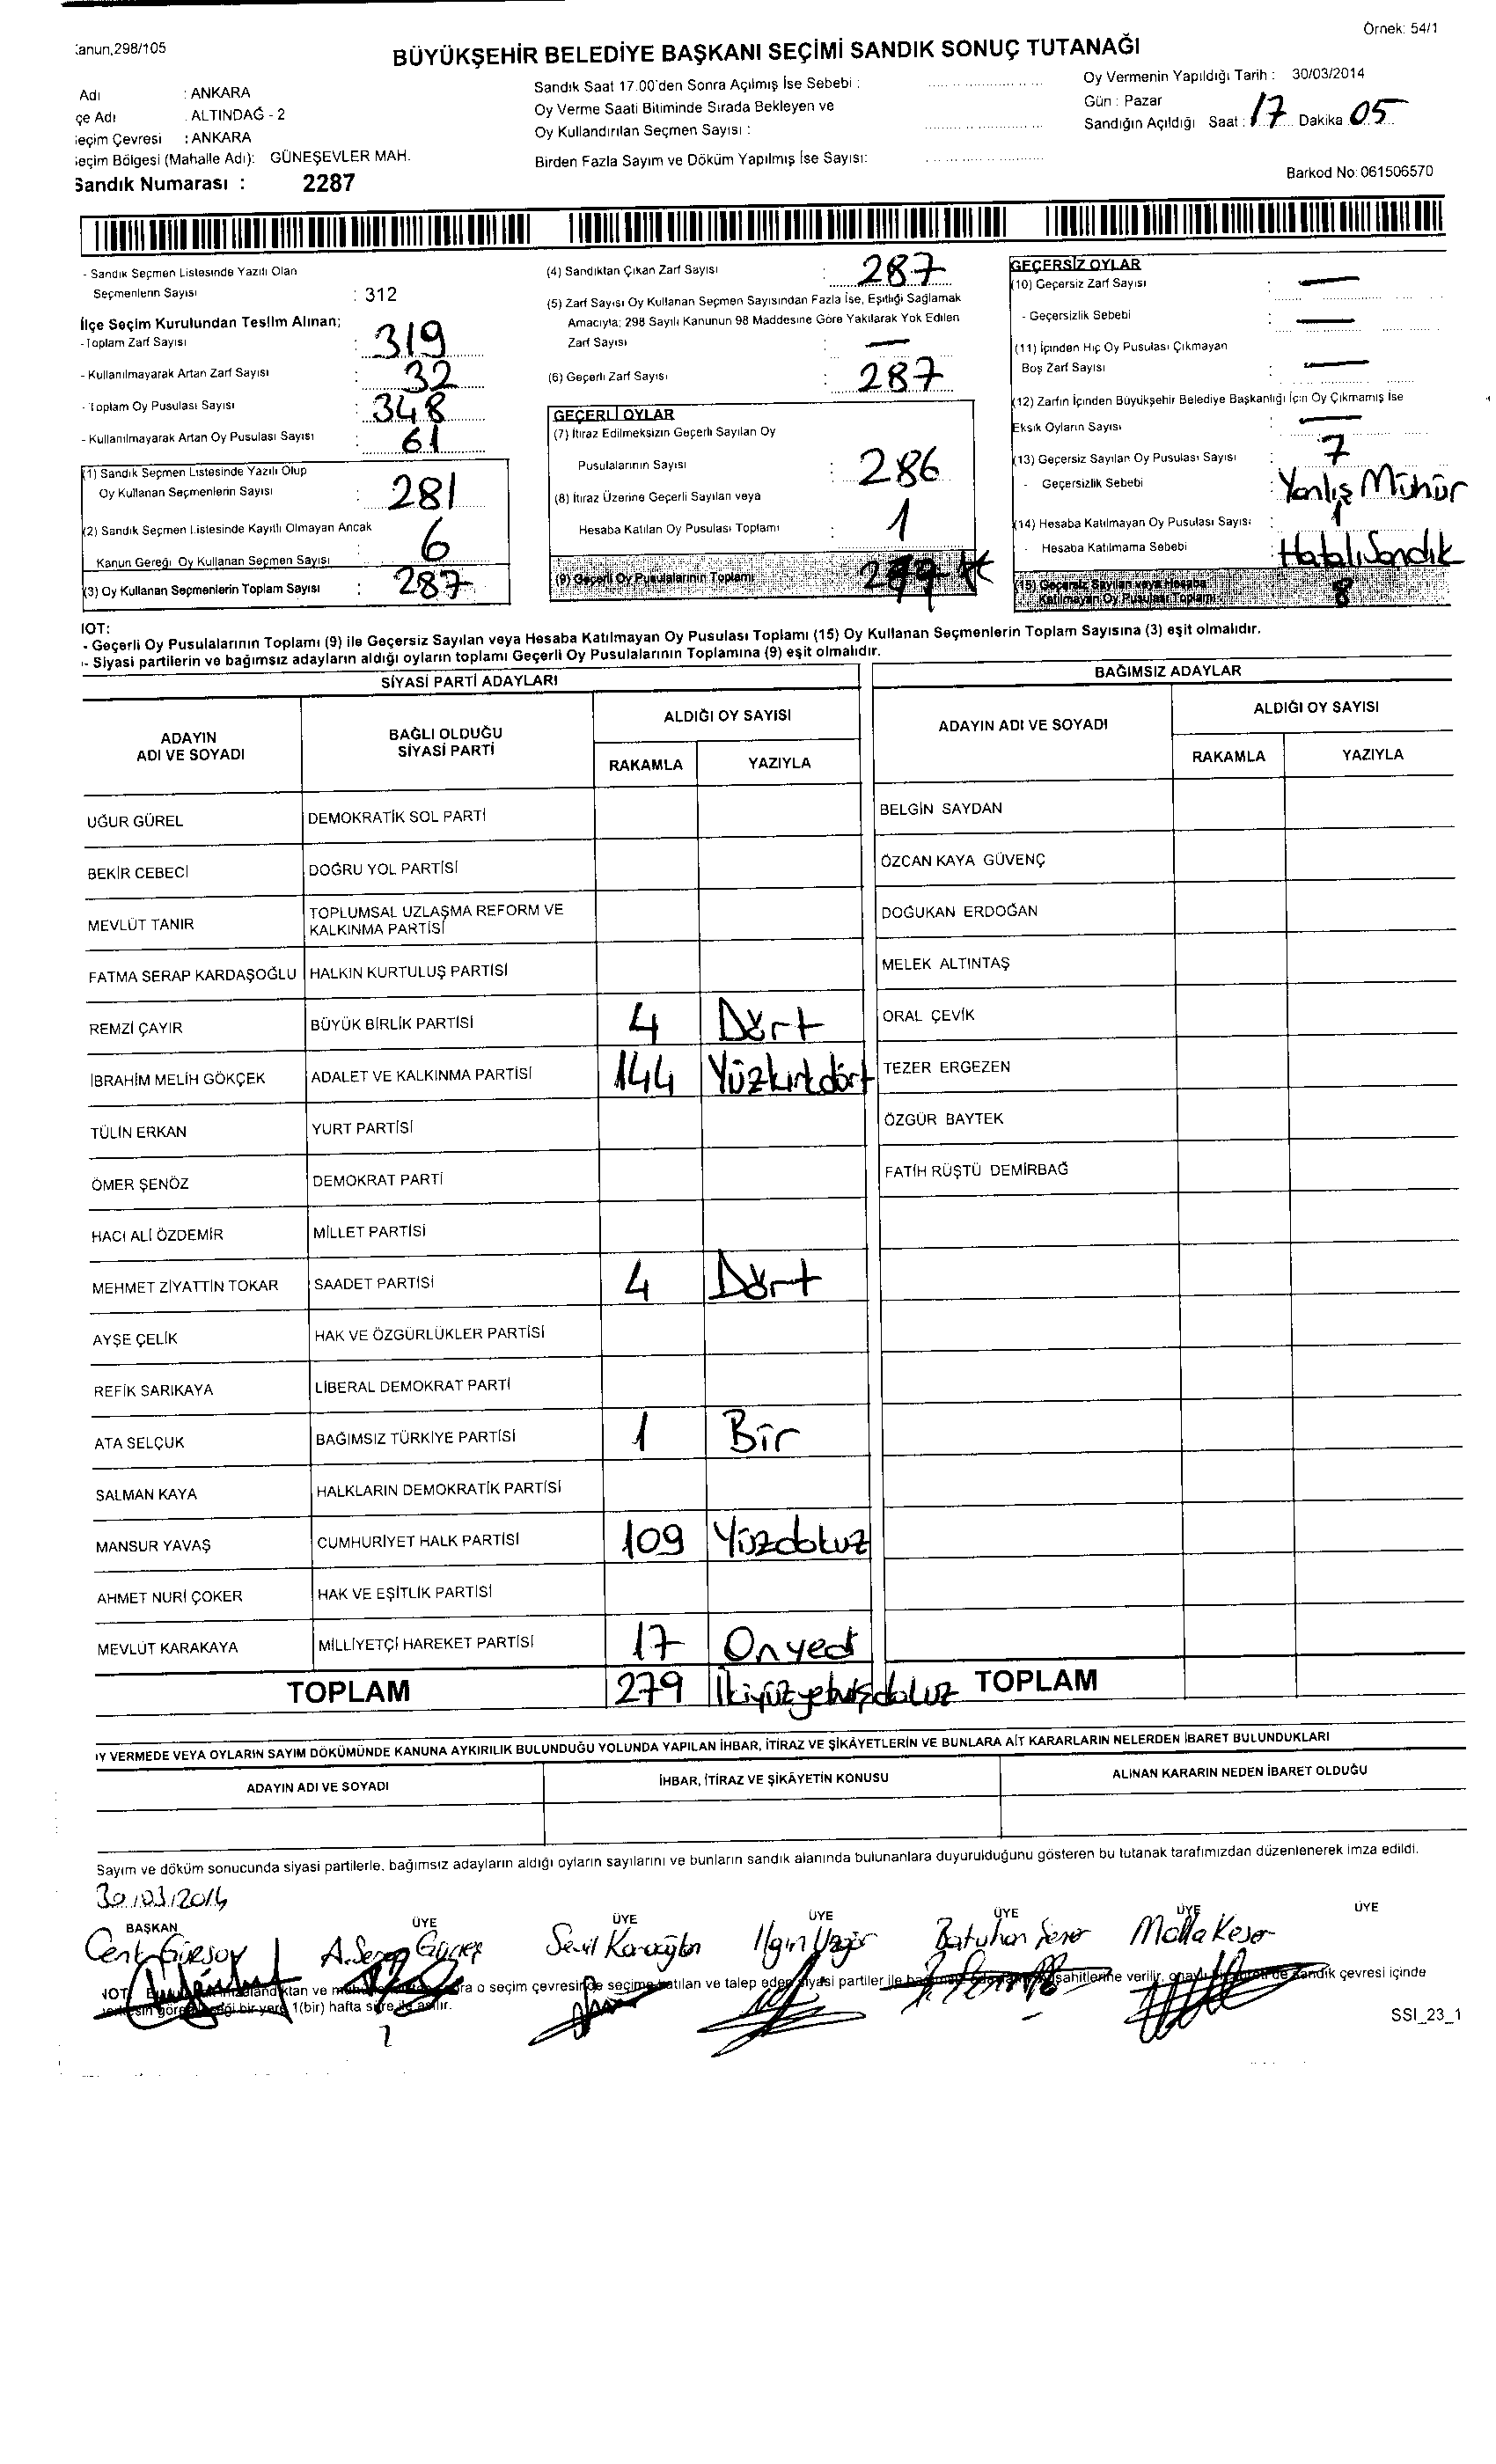 Örnek: 54/1
anun,298/105
BÜYÜKŞEHİR BELEDİYE BAŞKANI SEÇİMİ SANDIK SONUÇ TUTANAĞI
Adı : ANKARA
çe Adı ALTINDAĞ - 2
eçim Çevresi : ANKARA
eçim Bölgesi (Mahalle Adı): GÜNEŞEVLER MAH.
Sandık Numarası : 2287
Sandık Saat 17.00'den Sonra Açılmış İse Sebebi :
Oy Verme Saati Bitiminde Sırada Bekleyen ve
Oy Kullandırılan Seçmen Sayısı :
Birden Fazla Sayım ve Döküm Yapılmış İse Sayısı:
Oy Vermenin Yapıldığı Tarih : 30/03/2014
Gün : Pazar
Sandığın Açıldığı Saat : 17 Dakika 05
Barkod No: 061506570
- Sandık Seçmen Listesinde Yazılı Olan
Seçmenlerin Sayısı : 312
İlçe Seçim Kurulundan Teslim Alınan;
-Toplam Zarf Sayısı : 319
- Kullanılmayarak Artan Zarf Sayısı : 32
- Toplam Oy Pusulası Sayısı : 348
- Kullanılmayarak Artan Oy Pusulası Sayısı : 61
(1) Sandık Seçmen Listesinde Yazılı Olup
Oy Kullanan Seçmenlerin Sayısı : 281
(2) Sandık Seçmen Listesinde Kayıtlı Olmayan Ancak
Kanun Gereği Oy Kullanan Seçmen Sayısı : 6
(3) Oy Kullanan Seçmenlerin Toplam Sayısı : 287
(4) Sandıktan Çıkan Zarf Sayısı : 287
(5) Zarf Sayısı Oy Kullanan Seçmen Sayısından Fazla İse, Eşitliği Sağlamak
Amacıyla; 298 Sayılı Kanunun 98 Maddesine Göre Yakılarak Yok Edilen
Zarf Sayısı : —
(6) Geçerli Zarf Sayısı : 287
GEÇERLİ OYLAR
(7) İtiraz Edilmeksizin Geçerli Sayılan Oy
Pusulalarının Sayısı : 286
(8) İtiraz Üzerine Geçerli Sayılan veya
Hesaba Katılan Oy Pusulası Toplamı : 1
(9) Geçerli Oy Pusulalarının Toplamı
GEÇERSİZ OYLAR
(10) Geçersiz Zarf Sayısı : —
- Geçersizlik Sebebi : —
(11) İçinden Hiç Oy Pusulası Çıkmayan
Boş Zarf Sayısı : —
(12) Zarfın İçinden Büyükşehir Belediye Başkanlığı İçin Oy Çıkmamış İse
Eksik Oyların Sayısı : —
(13) Geçersiz Sayılan Oy Pusulası Sayısı : 7
- Geçersizlik Sebebi : Yanlış Mühür
(14) Hesaba Katılmayan Oy Pusulası Sayısı : 1
- Hesaba Katılmama Sebebi : Hatalı Sandık
(15) Geçersiz Sayılan veya Hesaba
Katılmayan Oy Pusulası Toplamı : 8
IOT:
- Geçerli Oy Pusulalarının Toplamı (9) ile Geçersiz Sayılan veya Hesaba Katılmayan Oy Pusulası Toplamı (15) Oy Kullanan Seçmenlerin Toplam Sayısına (3) eşit olmalıdır.
- Siyasi partilerin ve bağımsız adayların aldığı oyların toplamı Geçerli Oy Pusulalarının Toplamına (9) eşit olmalıdır.
SİYASİ PARTİ ADAYLARI
ADAYIN ADI VE SOYADI
BAĞLI OLDUĞU SİYASİ PARTİ
ALDIĞI OY SAYISI
RAKAMLA YAZIYLA
UĞUR GÜREL DEMOKRATİK SOL PARTİ
BEKİR CEBECİ DOĞRU YOL PARTİSİ
MEVLÜT TANIR TOPLUMSAL UZLAŞMA REFORM VE
KALKINMA PARTİSİ
FATMA SERAP KARDAŞOĞLU HALKIN KURTULUŞ PARTİSİ
REMZİ ÇAYIR BÜYÜK BİRLİK PARTİSİ 4 Dört
İBRAHİM MELİH GÖKÇEK ADALET VE KALKINMA PARTİSİ 144 Yüzkırkdört
TÜLİN ERKAN YURT PARTİSİ
ÖMER ŞENÖZ DEMOKRAT PARTİ
HACI ALİ ÖZDEMİR MİLLET PARTİSİ
MEHMET ZİYATTİN TOKAR SAADET PARTİSİ 4 Dört
AYŞE ÇELİK HAK VE ÖZGÜRLÜKLER PARTİSİ
REFİK SARIKAYA LİBERAL DEMOKRAT PARTİ
ATA SELÇUK BAĞIMSIZ TÜRKİYE PARTİSİ 1 Bir
SALMAN KAYA HALKLARIN DEMOKRATİK PARTİSİ
MANSUR YAVAŞ CUMHURİYET HALK PARTİSİ 109 Yüzdokuz
AHMET NURİ ÇOKER HAK VE EŞİTLİK PARTİSİ
MEVLÜT KARAKAYA MİLLİYETÇİ HAREKET PARTİSİ 17 Onyedi
TOPLAM 279 İkiyüzyetmişdokuz
BAĞIMSIZ ADAYLAR
ADAYIN ADI VE SOYADI
ALDIĞI OY SAYISI
RAKAMLA YAZIYLA
BELGİN SAYDAN
ÖZCAN KAYA GÜVENÇ
DOĞUKAN ERDOĞAN
MELEK ALTINTAŞ
ORAL ÇEVİK
TEZER ERGEZEN
ÖZGÜR BAYTEK
FATİH RÜŞTÜ DEMİRBAĞ
TOPLAM
IY VERMEDE VEYA OYLARIN SAYIM DÖKÜMÜNDE KANUNA AYKIRILIK BULUNDUĞU YOLUNDA YAPILAN İHBAR, İTİRAZ VE ŞİKÂYETLERİN VE BUNLARA AİT KARARLARIN NELERDEN İBARET BULUNDUKLARI
ADAYIN ADI VE SOYADI İHBAR, İTİRAZ VE ŞİKÂYETİN KONUSU ALINAN KARARIN NEDEN İBARET OLDUĞU
Sayım ve döküm sonucunda siyasi partilerle, bağımsız adayların aldığı oyların sayılarını ve bunların sandık alanında bulunanlara duyurulduğunu gösteren bu tutanak tarafımızdan düzenlenerek imza edildi.
30/03/2014
BAŞKAN ÜYE ÜYE ÜYE ÜYE ÜYE ÜYE
Cenk Gürsoy Batuhan Şener Molla Keser
NOT: ra o seçim çevresinde seçime katılan ve talep eden siyasi partiler ile şahitlerine verilir, sandık çevresi içinde
1(bir) hafta süre ile asılır.
SSI_23_1